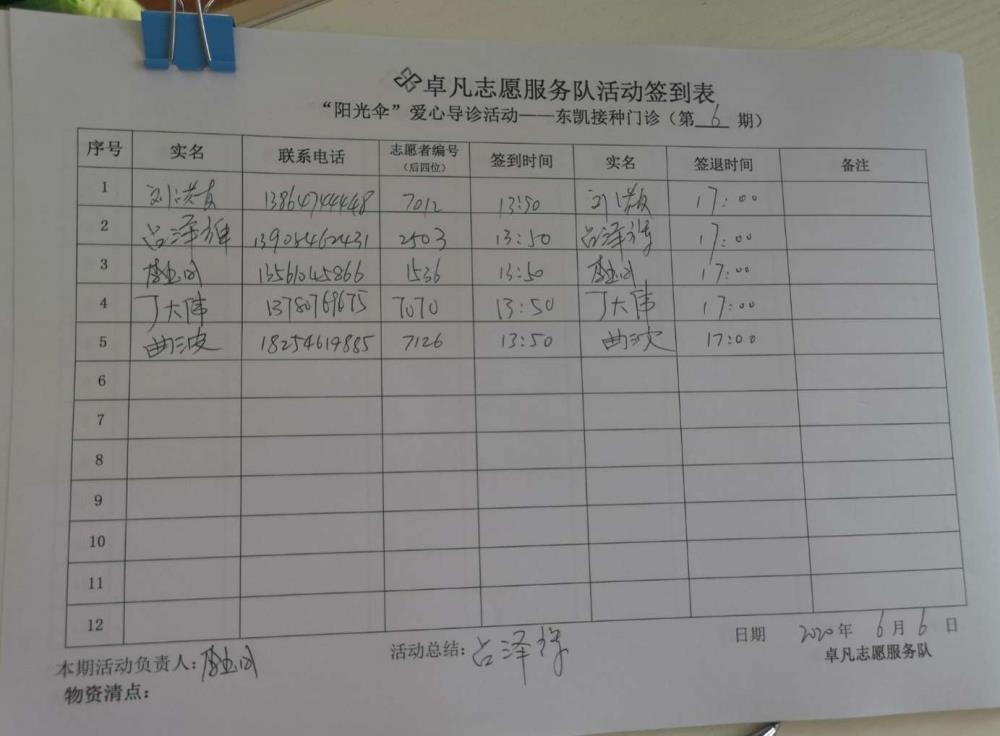 卓凡志愿服务队活动签到表
“阳光伞”爱心导诊活动——东凯接种门诊（第 6 期）
序号 实名 联系电话 志愿者编号（后四位） 签到时间 实名 签退时间 备注
1 13864744448 7012 13:50 17:00
2 占泽 13905462431 2503 13:50 占泽 17:00
3 13561045866 1536 13:50 17:00
4 丁大伟 13780769675 7070 13:50 丁大伟 17:00
5 曲波 18254619885 7126 13:50 曲波 17:00
6
7
8
9
10
11
12
本期活动负责人： 活动总结：占泽 日期 2020年 6月 6日
卓凡志愿服务队
物资清点：